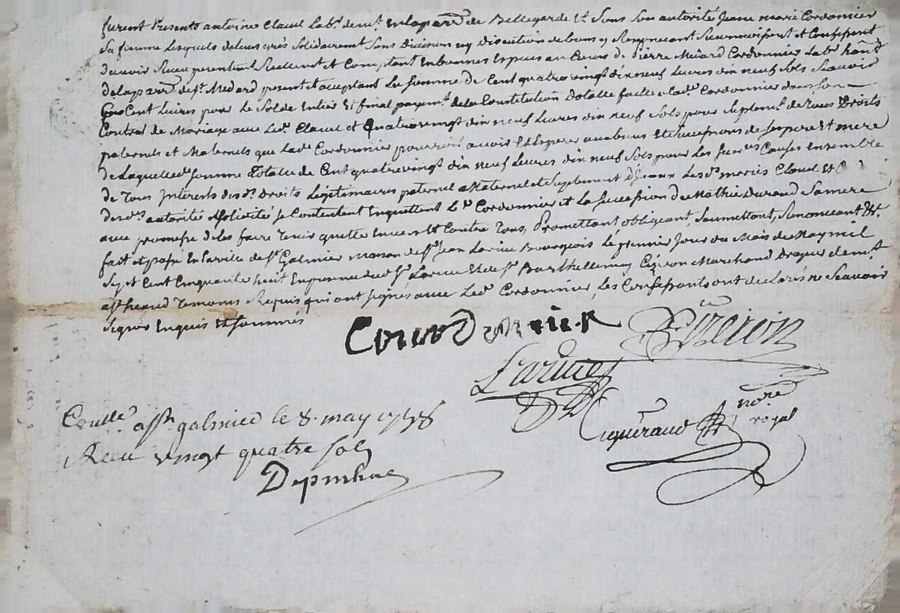 furent Presents antoine Claud Labr. demt. En la parr. de Bellegarde Et Sous Son autorité Jeane marie Cordonnier
Sa femme Lesquels de leurs grés Solidairement Sans Division ny Discution de biens y Renonçant Reconnoissent et Confessent
d'avoir Receu presentement Reellement et Comptant En bonnes Especes au Cours de Pierre Cordonnier Labr.
de la parr. de St. Medard present et acceptant La Somme de Cent quatre vingt dix neuf Livres dix neuf Sols Scavoir
Cent Livres pour Le Solde Entier Et final payemt. de la Constitution Dotalle faitte a lad. Cordonnier dans son
Contrat de Mariage avec Led. Claud et Quatre vingt dix neuf Livres dix neuf Sols pour Suplemt. de tous Droits
paternels et Maternels que Lad. Cordonnier pourroit avoir et Esperer aux biens et Successions de Ses pere Et mere
de Laquelle somme totalle de Cent quatre vingt dix neuf Livres dix neuf Sols pour Les Susd. Causes Ensemble
de Tous Interests desd. Droits Legitimaires paternel et Maternel et Suplement Led. mariés Claud Et
de autorité Se Contentent En quittent Led. Cordonnier et La Succession de Mathie Durand Sa mere
avec promesse de les faire tenir quitte Envers Et Contre Tous, Promettant, obligeant, Soumettant, Renonceant &c.
fait et passé En la ville de St. Galmier Maison de Sr. Jean Larüe Bourgeois Le premier Jour du Mois de May mil
Sept Cent Cinquante huit En presence dud. Sr. Larüe Et de Sr. Barthellemy Marchand demt.
aud. St. heand temoins Requis qui ont Signés avec Led. Cordonnier, Les Confessants ont declarés ne Scavoir
Signer Enquis Et Sommés
Courdonnier
Larüe
Nore
royal
Conlle. a St. galmier le 8. may 1758
Receu vingt quatre sols